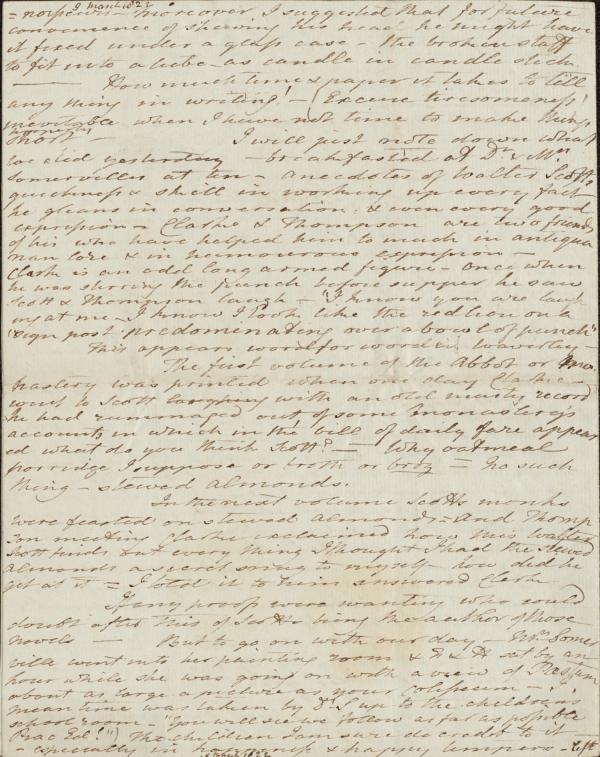 = noisseurs moreover I suggested that for future
convenience of shewing his head he might have
it fixed under a glass case - the broken staff
to fit into a tube - as candle in candle stick.
— How much time & paper it takes to tell
any thing in writing! - (Excuse tiresomeness!
inevitable when I have not time to make things
short —
I will just note down what
we did yesterday - breakfasted at Dr. & Mrs.
Somervilles at ten - anecdotes of Walter Scotts
quickness & skill in working up every fact
he gleans in conversation & even every good
expression - Clarke & Thompson are two friends
of his who have helped him to much in antiqua
rian lore & in humourous expression -
Clarke is an odd long armed figure - once when
he was stirring the punch before supper he saw
Scott & Thompson laugh - "I know you are laugh
ing at me - I know I look like the red lion on a
"sign post predominating over a bowl of punch"
This appears word for word in Waverley -
The first volume of the Abbot or Mo
nastery was printed when one day Clarke
went to Scott laughing with an old musty record
he had rummaged out of some monasterys
accounts in which in the bill of daily fare appear
ed what do you think Scott? — Why oatmeal
porridge I suppose or broth or broz = no such
thing - stewed almonds.
In the next volume Scotts monks
were feasted on stewed almonds - and Thomp
son meeting Clarke exclaimed how this Walter
Scott finds out every thing I thought I had the stewed
almonds a secret snug to myself - how did he
get at it = I told it to him answered Clarke
If any proof were wanting who could
doubt after this of Scotts being the author of those
novels — But to go on with our day - Mrs. Somer
ville went into her painting room & F & H sat by an
hour while she was going on with a view of Pæstum
about as large a picture as your Coliseum - I
meantime was taken by Dr. S up to the childrens
school room - "You will see we follow as far as possible
Prac Ed!") The children I am sure do credit to it
- especially in & happy tempers - left